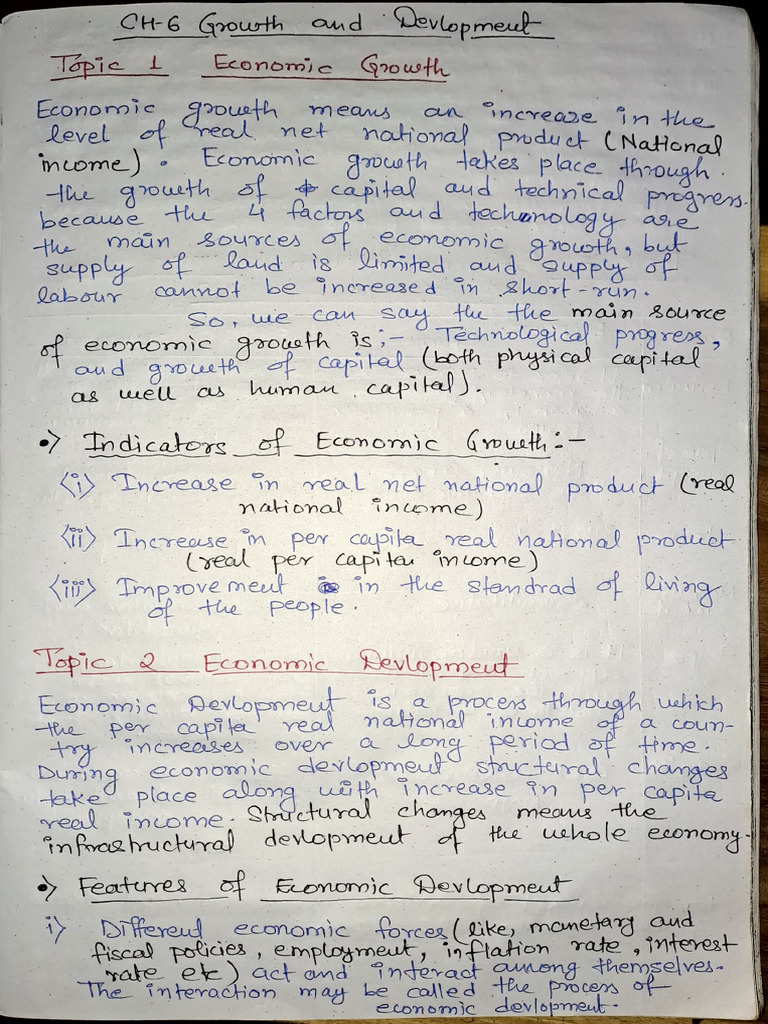 CH-6 Growth and Devlopment
Topic 1 Economic Growth
Economic growth means an increase in the
level of real net national product (National
income). Economic growth takes place through
the growth of capital and technical progress.
because the 4 factors and techonology are
the main sources of economic growth, but
supply of land is limited and supply of
labour cannot be increased in short-run.
So, we can say the the main source
of economic growth is:- Technological progress,
and growth of capital (both physical capital
as well as human capital).
•) Indicators of Economic Growth:-
(i) Increase in real net national product (real
national income)
(ii) Increase in per capita real national product
(real per capita income)
(iii) Improvement in the standrad of living
of the people.
Topic 2 Economic Devlopment
Economic Devlopment is a process through which
the per capita real national income of a coun-
try increases over a long period of time.
During economic devlopment structural changes
take place along with increase in per capita
real income. Structural changes means the
infrastructural devlopment of the whole economy.
•) Features of Economic Devlopment
i) Different economic forces (like, manetary and
fiscal policies, employment, inflation rate, interest
rate etc) act and interact among themselves.
The interaction may be called the process of
economic devlopment.